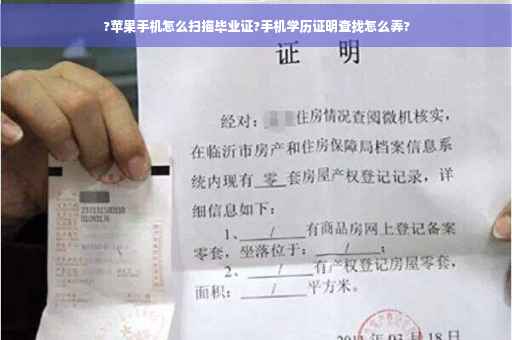 ?苹果手机怎么扫描毕业证?手机学历证明查找怎么弄?
证 明
经对: 住房情况查阅微机核实,
在临沂市房产和住房保障局档案信息系
统内现有 零 套房屋产权登记记录,详
细信息如下:
1、 / 有商品房网上登记备案
零套,坐落位于: / ;
2、 / 有产权登记房屋零套,
面积: / 平方米。
03月18日